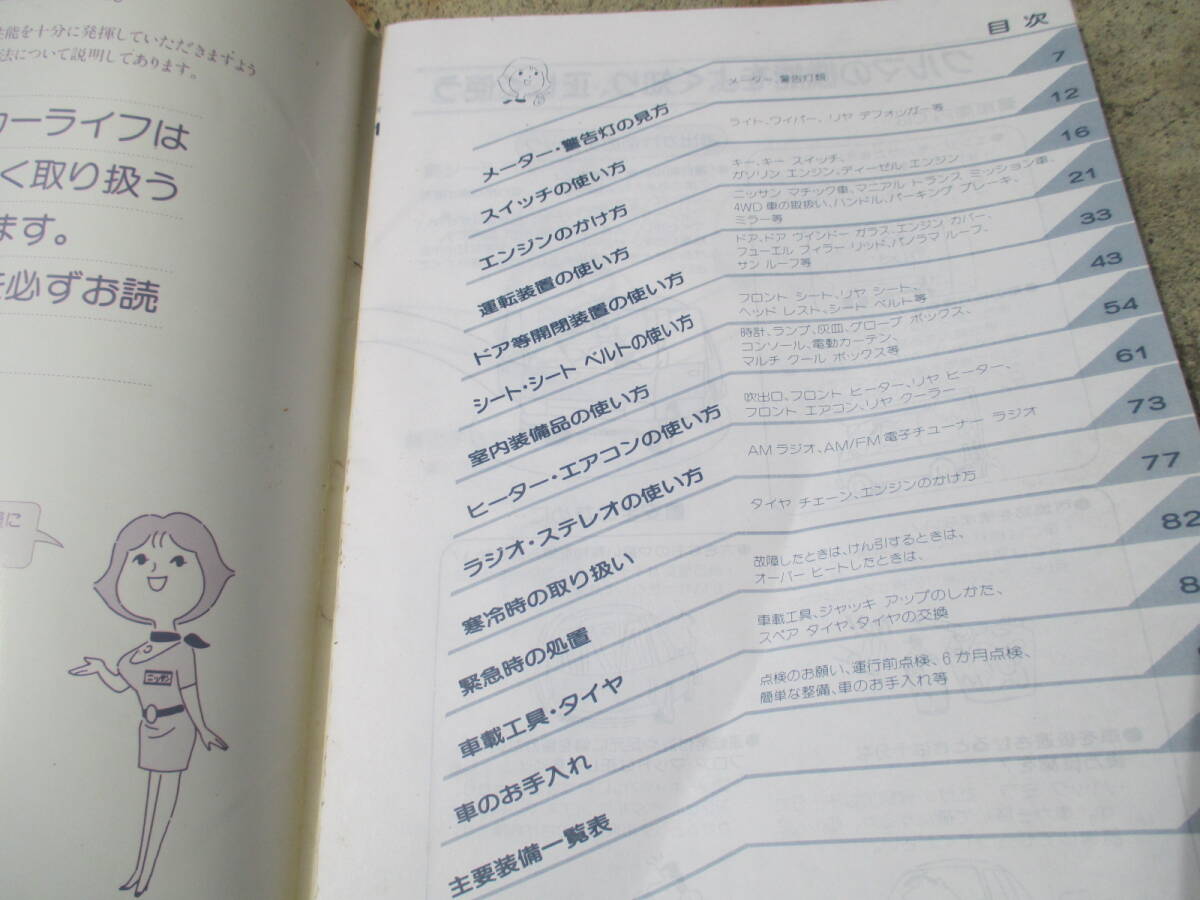 能を十分に発揮していただきますよう
法について説明してあります。
カーライフは
く取り扱う
ます。
を必ずお読
に
ニッサン
目次
メーター・警告灯の見方
メーター、警告灯類
7
スイッチの使い方
ライト、ワイパー、リヤ デフォッガー等
12
エンジンのかけ方
キー、キー スイッチ、
ガソリン エンジン、ディーゼル エンジン
16
運転装置の使い方
ニッサン マチック車、マニアル トランス ミッション車、
4WD車の取扱い、ハンドル、パーキング ブレーキ、
ミラー等
21
ドア等開閉装置の使い方
ドア、ドア ウインドー ガラス、エンジン カバー、
フューエル フィラー リッド、パノラマ ルーフ、
サン ルーフ等
33
シート・シート ベルトの使い方
フロント シート、リヤ シート、
ヘッド レスト、シート ベルト等
43
室内装備品の使い方
時計、ランプ、灰皿、グローブ ボックス、
コンソール、電動カーテン、
マルチ クール ボックス等
54
ヒーター・エアコンの使い方
吹出口、フロント ヒーター、リヤ ヒーター、
フロント エアコン、リヤ クーラー
61
ラジオ・ステレオの使い方
AMラジオ、AM/FM電子チューナー ラジオ
73
寒冷時の取り扱い
タイヤ チェーン、エンジンのかけ方
77
緊急時の処置
故障したときは、けん引するときは、
オーバー ヒートしたときは、
82
車載工具・タイヤ
車載工具、ジャッキ アップのしかた、
スペア タイヤ、タイヤの交換
8
車のお手入れ
点検のお願い、運行前点検、6か月点検、
簡単な整備、車のお手入れ等
主要装備一覧表